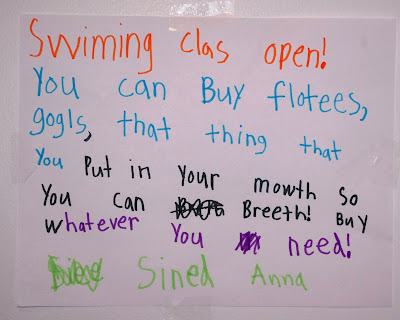 Swiming clas open!
You can Buy flotees,
gogls, that thing that
You Put in Your mowth so
You can Breeth! Buy
whatever You need!
Sined Anna